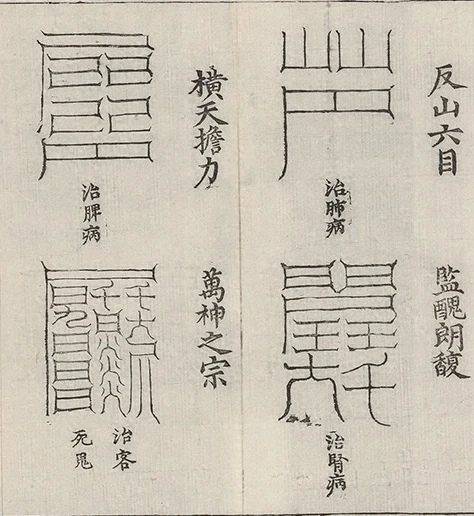 反山六目
治肺病
監醜朗馥
治腎病
橫天擔力
治脾病
萬神之宗
治客
死鬼